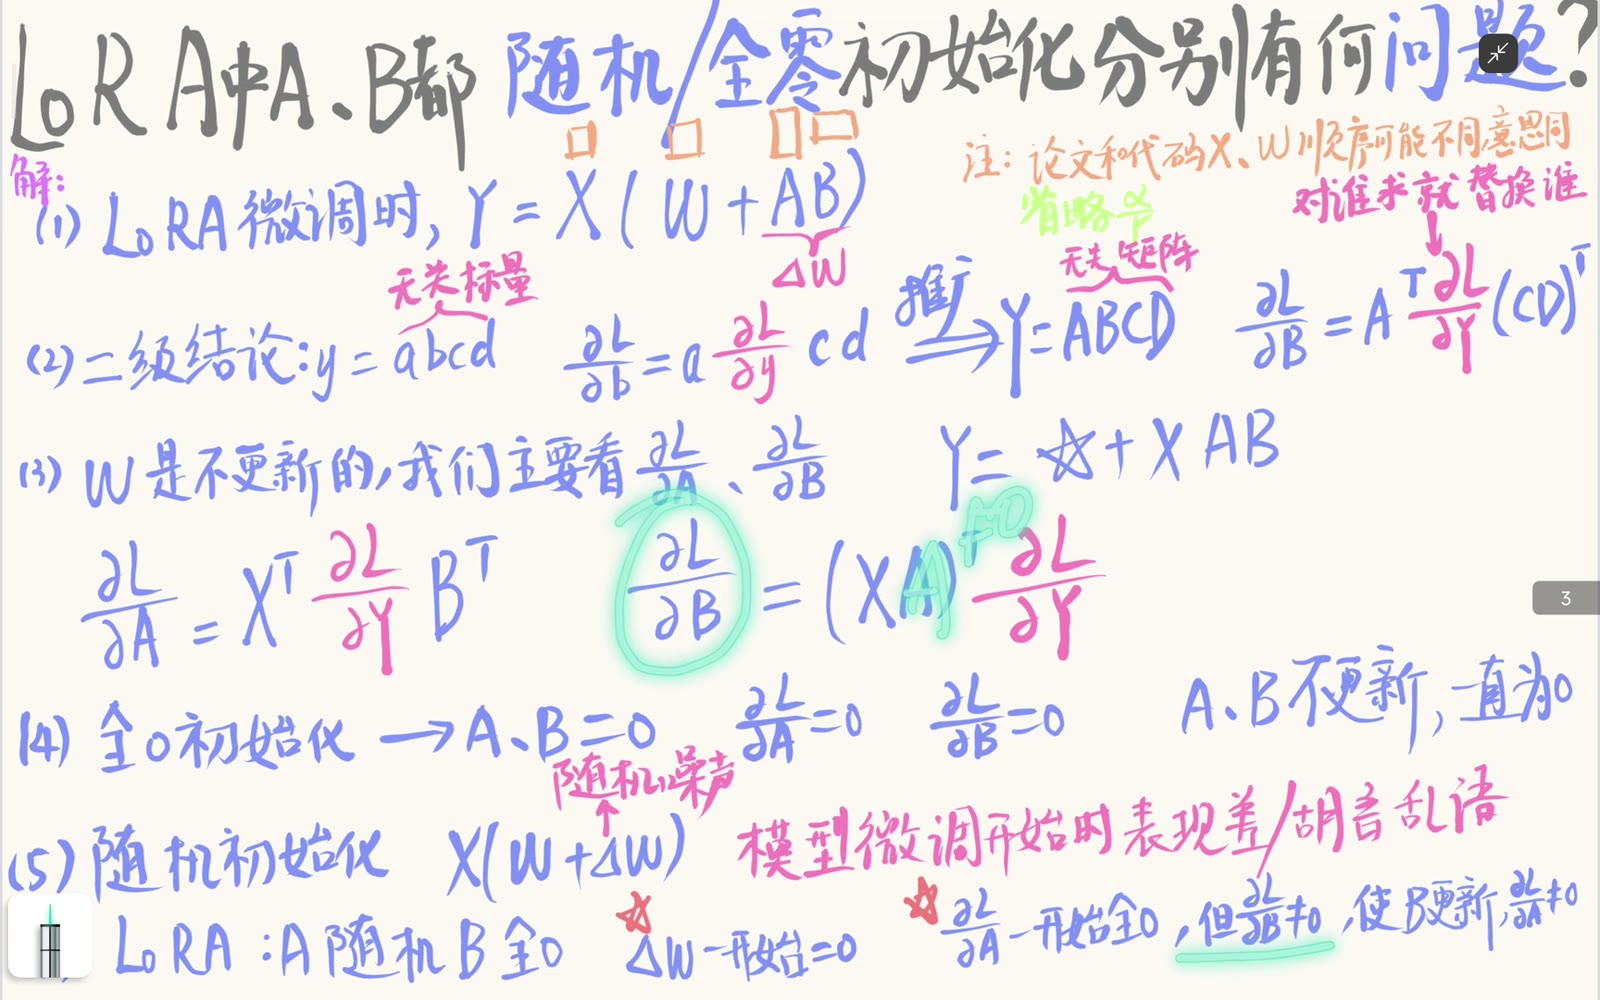 LoRA中A、B都随机/全零初始化分别有何问题?
注：论文和代码X、W顺序可能不同,意思同
解：
(1) LoRA微调时, Y = X(W+AB)
ΔW
省略 α/r
对谁求就替换谁
无关标量
无关矩阵
(2) 二级结论: y = abcd ∂L/∂b = a ∂L/∂y cd 推广 ⇒ Y = ABCD ∂L/∂B = Aᵀ ∂L/∂Y (CD)ᵀ
(3) W是不更新的,我们主要看 ∂L/∂A、∂L/∂B Y = ☆ + XAB
∂L/∂A = Xᵀ ∂L/∂Y Bᵀ ∂L/∂B = (XA)ᵀ ∂L/∂Y
A ≠0
(4) 全0初始化 → A、B=0 ∂L/∂A=0 ∂L/∂B=0 A、B不更新,一直为0
随机噪声
(5) 随机初始化 X(W+ΔW) 模型微调开始时表现差/胡言乱语
LoRA:A随机B全0 ☆ ΔW一开始=0 ☆ ∂L/∂A一开始全0,但∂L/∂B≠0,使B更新,∂L/∂A≠0
3